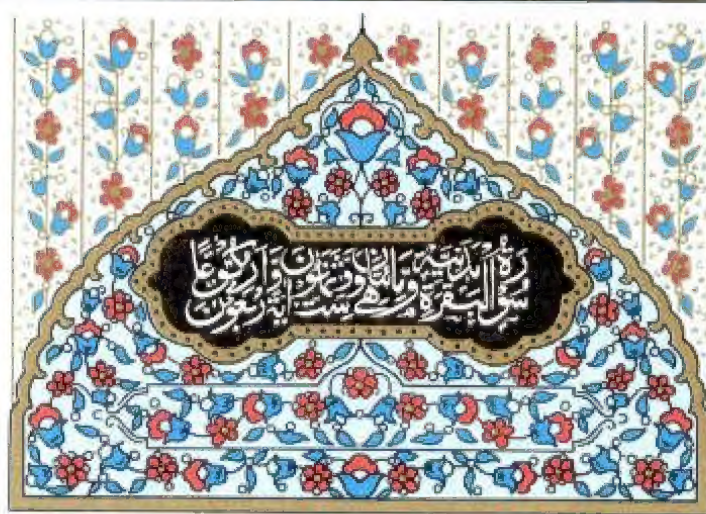 سورة البقرة مدنية وهي مائتان وست وثمانون اية واربعون ركوعًا